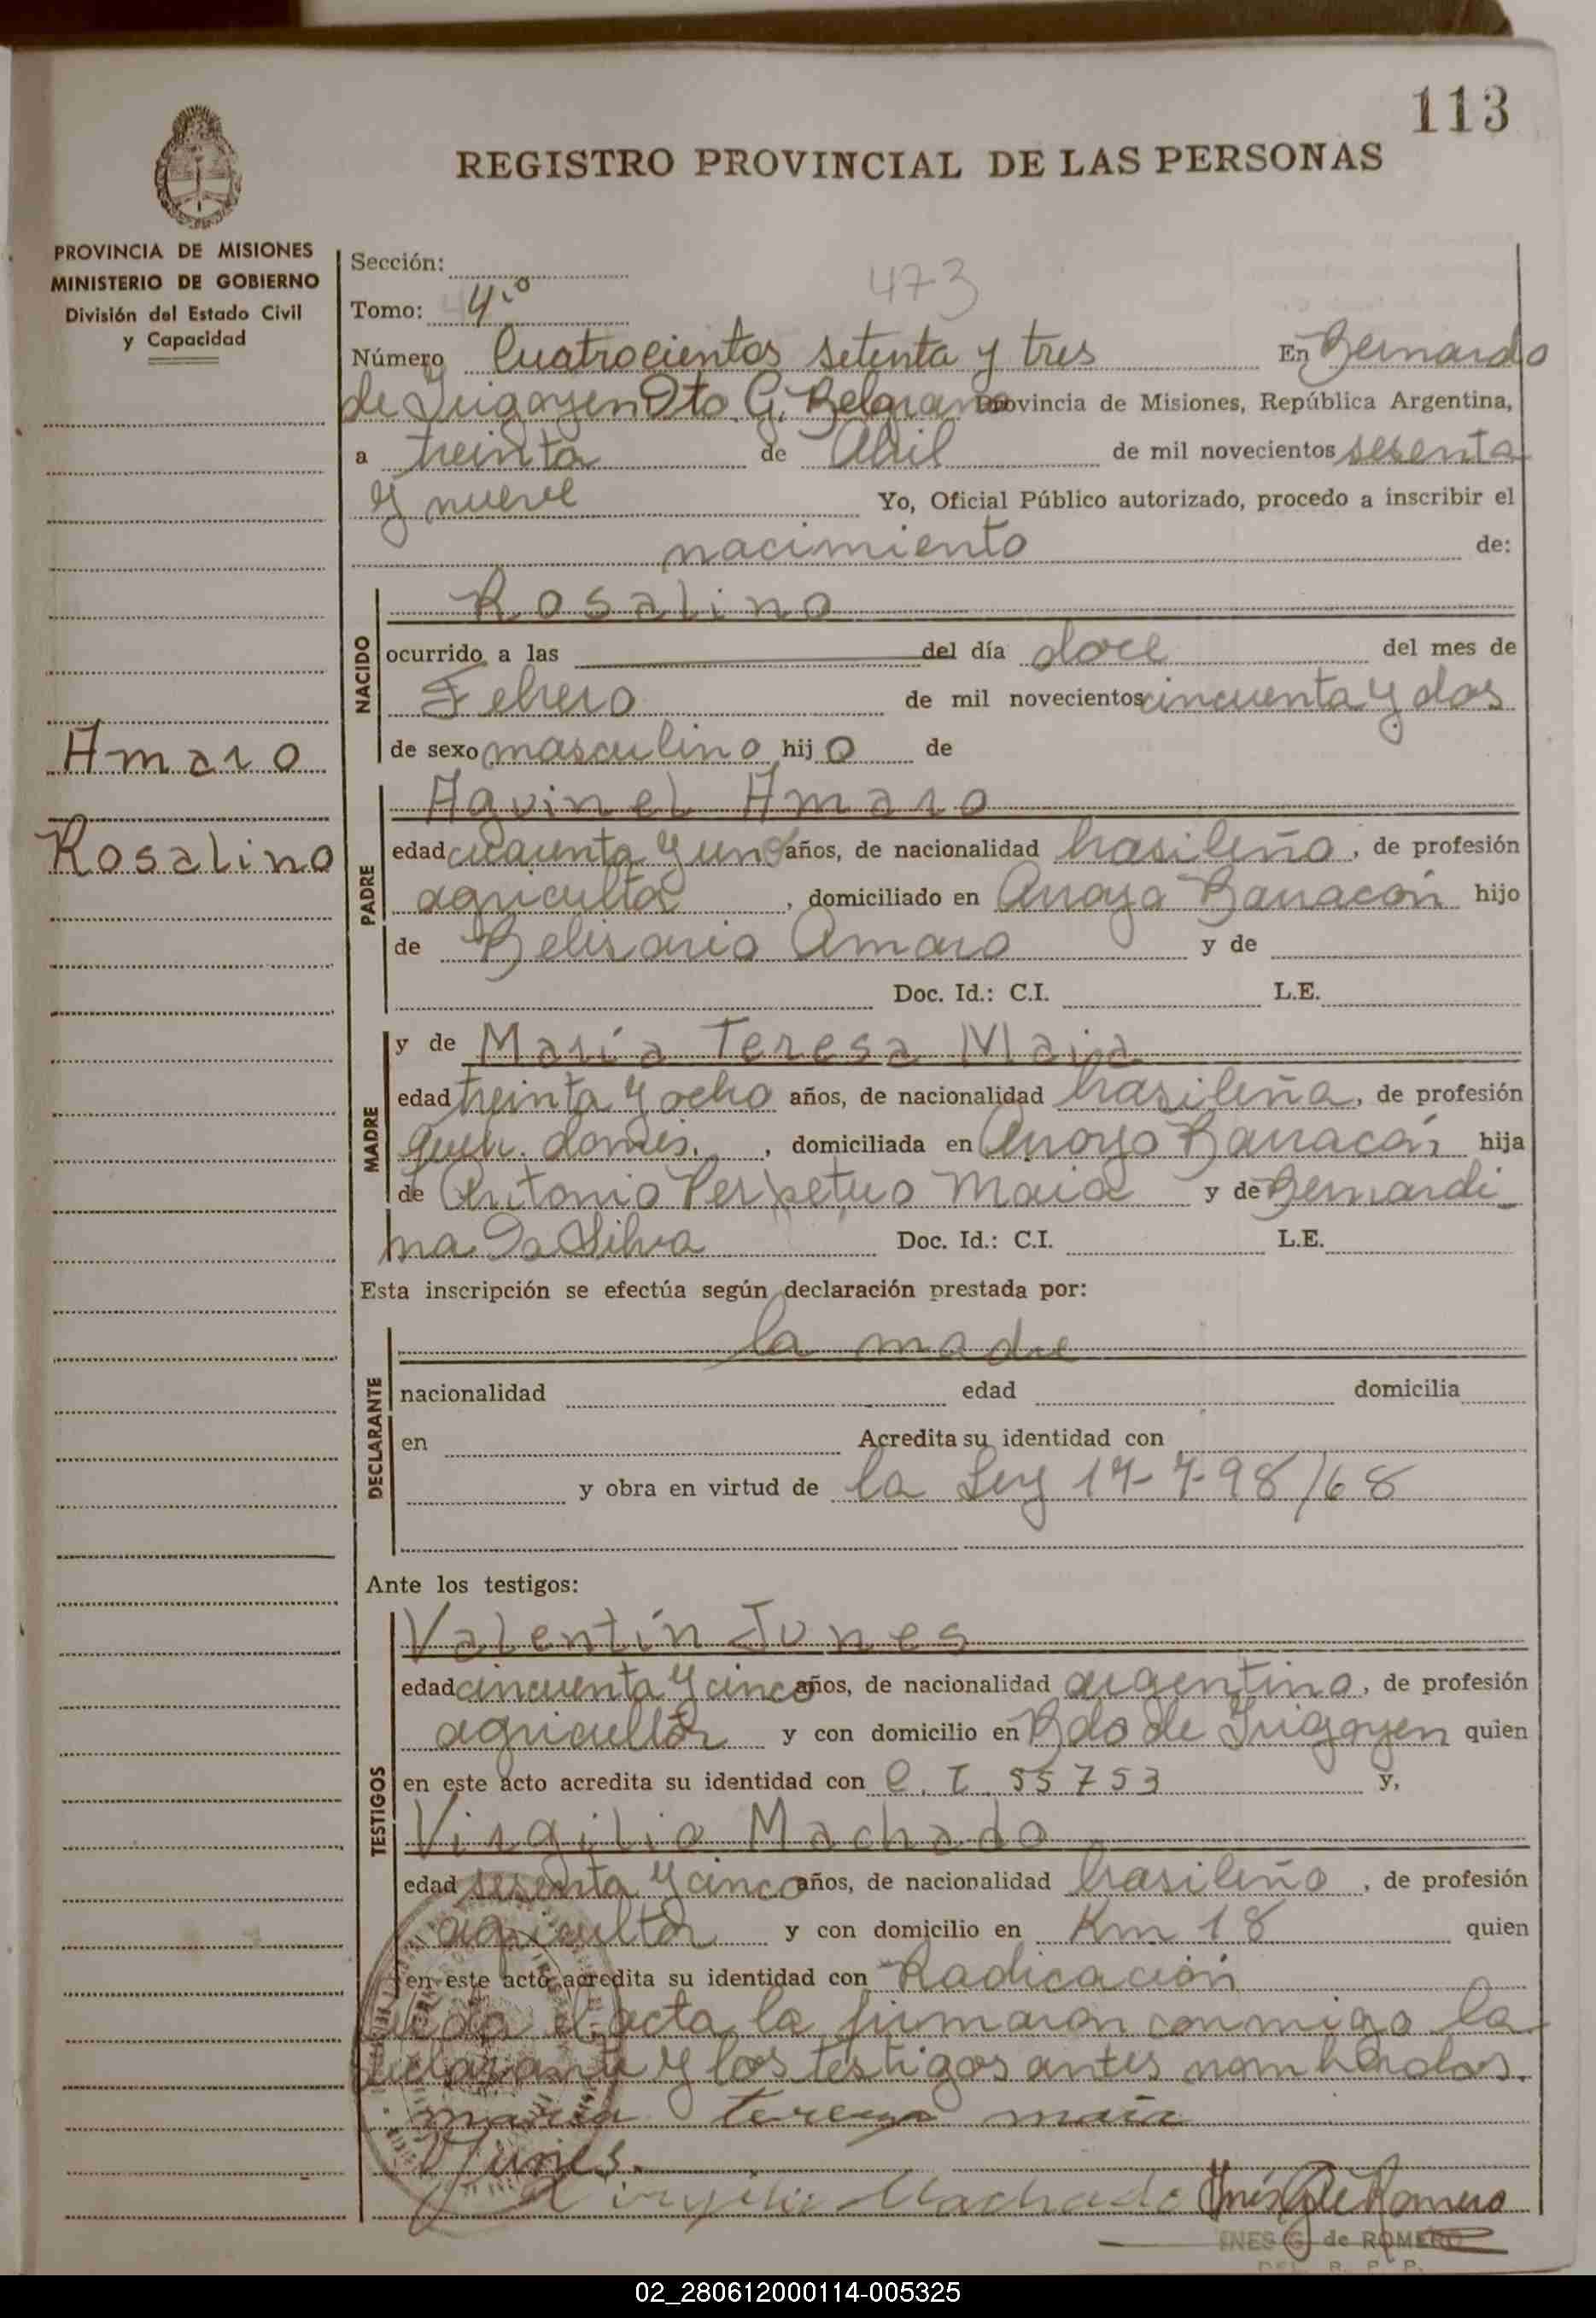 113
REGISTRO PROVINCIAL DE LAS PERSONAS
PROVINCIA DE MISIONES
MINISTERIO DE GOBIERNO
División del Estado Civil
y Capacidad
Sección:
473
Tomo: 4.º
Número Cuatrocientos setenta y tres En Bernardo
de Irigoyen Dto G. Belgrano Provincia de Misiones, República Argentina,
a treinta de Abril de mil novecientos sesenta
y nueve Yo, Oficial Público autorizado, procedo a inscribir el
nacimiento de:
NACIDO
Rosalino
ocurrido a las del día doce del mes de
Febrero de mil novecientos cincuenta y dos
de sexo masculino hijo de
Amaro
Rosalino
PADRE
Agvinel Amaro
edad cuaenta y uno años, de nacionalidad brasileño, de profesión
agricultor, domiciliado en Arroyo Barracón hijo
de Belisario Amaro y de
Doc. Id.: C.I. L.E.
MADRE
y de María Teresa Maia
edad treinta y ocho años, de nacionalidad brasileña, de profesión
queh. domés., domiciliada en Arroyo Barracón hija
de Antonio Perpetuo Maia y de Bernardi_
na Da Silva Doc. Id.: C.I. L.E.
Esta inscripción se efectúa según declaración prestada por:
DECLARANTE
la madre
nacionalidad edad domicilia
en Acredita su identidad con
y obra en virtud de la Ley 17-7-98/68
Ante los testigos:
TESTIGOS
Valentín Junes
edad cincuenta y cinco años, de nacionalidad argentino, de profesión
agricultor y con domicilio en Bdo de Irigoyen quien
en este acto acredita su identidad con C. I. 55753 y,
Virgilio Machado
edad sesenta y cinco años, de nacionalidad brasileño, de profesión
agricultor y con domicilio en Km 18 quien
en este acto acredita su identidad con Radicación
el acta la firmaron conmigo la
declarante y los testigos antes nombrados.
maria tereza maia
VJunes.
Virgilio Machado Inés G de Romero
INES G de ROMERO
DEL. R. P. P.
02_280612000114-005325